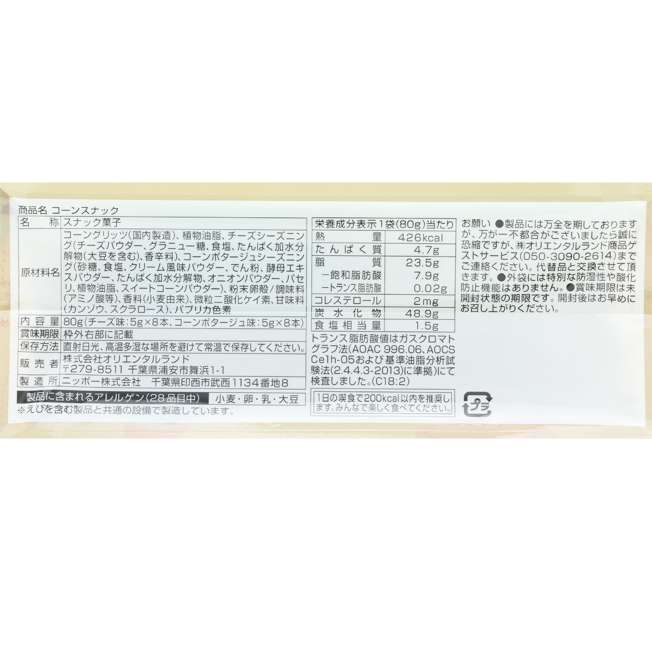 商品名 コーンスナック
名 称 スナック菓子
原材料名 コーングリッツ(国内製造)、植物油脂、チーズシーズニン
グ(チーズパウダー、グラニュー糖、食塩、たんぱく加水分
解物(大豆を含む)、香辛料)、コーンポタージュシーズニン
グ(砂糖、食塩、クリーム風味パウダー、でん粉、酵母エキ
スパウダー、たんぱく加水分解物、オニオンパウダー、パセ
リ、植物油脂、スイートコーンパウダー)、粉末卵殻/調味料
(アミノ酸等)、香料(小麦由来)、微粒二酸化ケイ素、甘味料
(カンゾウ、スクラロース)、パプリカ色素
内 容 量 80g(チーズ味:5g×8本、コーンポタージュ味:5g×8本)
賞味期限 枠外右部に記載
保存方法 直射日光、高温多湿な場所を避けて常温で保存してください。
販 売 者 株式会社オリエンタルランド
〒279-8511 千葉県浦安市舞浜1-1
製 造 所 ニッポー株式会社 千葉県印西市武西1134番地8
製品に含まれるアレルゲン(28品目中) 小麦・卵・乳・大豆
※えびを含む製品と共通の設備で製造しています。
栄養成分表示1袋(80g)当たり
熱 量 426kcal
たんぱく質 4.7g
脂 質 23.5g
−飽和脂肪酸 7.9g
−トランス脂肪酸 0.02g
コレステロール 2mg
炭水化物 48.9g
食塩相当量 1.5g
トランス脂肪酸値はガスクロマト
グラフ法(AOAC 996.06、AOCS
Ce1h-05および基準油脂分析試
験法(2.4.4.3-2013)に準拠)にて
検査しました。(C18:2)
1日の間食で200kcal以内を推奨し
ます。みんなで楽しく食べてください。
お願い ●製品には万全を期しております
が、万が一不都合がございましたら誠に
恐縮ですが、㈱オリエンタルランド商品ゲ
ストサービス(050-3090-2614)まで
ご連絡ください。代替品と交換させて頂
きます。●外袋には特別な防湿性や酸化
防止機能はありません。●賞味期限は未
開封状態の期限です。開封後はお早めに
お召し上がりください。
プラ